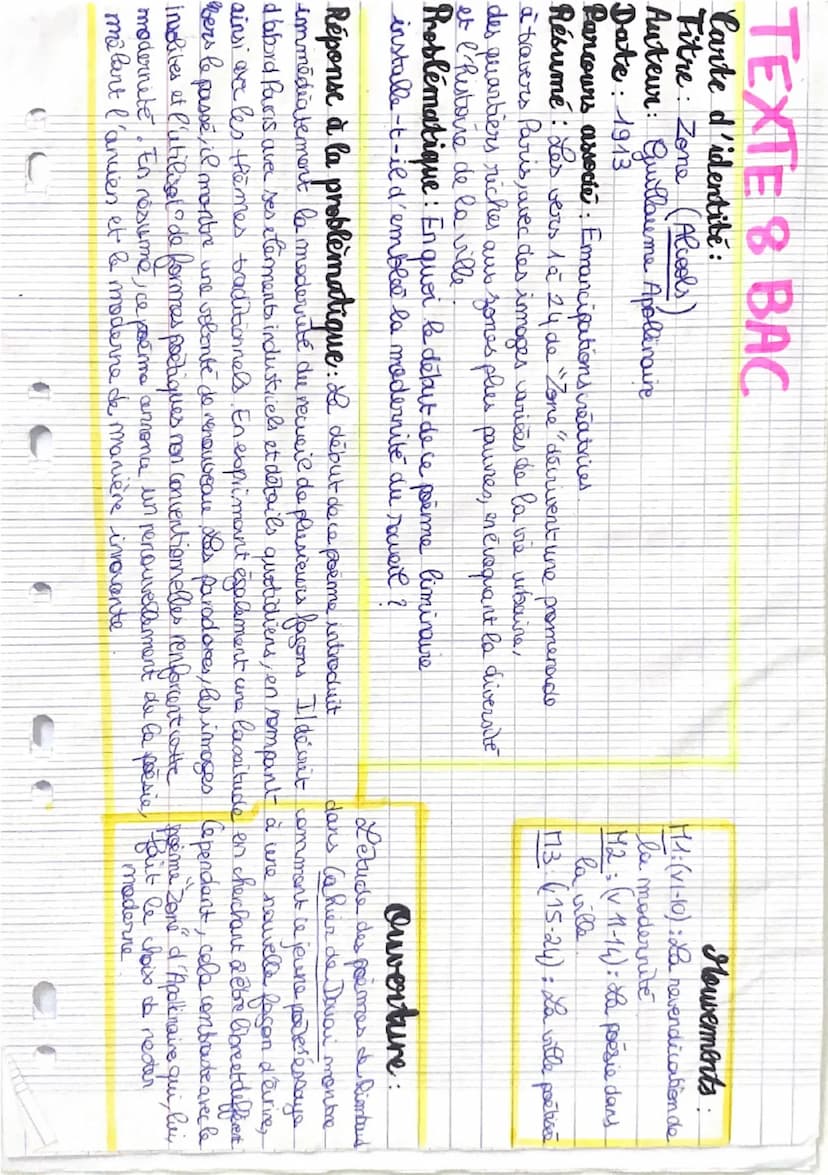 TEXTE 8 BAC
Carte d'identité :
Titre : Zone (Alcools)
Auteur : Guillaume Apollinaire
Date : 1913
Parcours associé : Emancipations créatrices
Résumé : Les vers 1 à 24 de "Zone" décrivent une promenade
à travers Paris, avec des images variées de la vie urbaine,
des quartiers riches aux zones plus pauvres, en évoquant la diversité
et l'histoire de la ville.
Problématique : En quoi le début de ce poème liminaire
installe-t-il d'emblée la modernité du recueil ?
Mouvements :
M1 : (v1-10) : La revendication de
la modernité
M2 : (v 11-14) : La poésie dans
la ville
M3 : (15-24) : La ville poétisée
Réponse à la problématique : Le début de ce poème introduit
immédiatement la modernité du recueil de plusieurs façons. Il décrit
d'abord Paris avec ses éléments industriels et détails quotidiens, en rompant
ainsi avec les thèmes traditionnels. En exprimant également une lassitude
vers le passé, il montre une volonté de renouveau. Les paradoxes, les images
insolites et l'utilisa° de formes poétiques non conventionnelles renforcent cette
modernité. En résumé, ce poème annonce un renouvellement de la poésie,
mêlant l'ancien et le moderne de manière innovante.
Ouverture :
L'étude des poèmes de Rimbaud
dans Cahier de Douai montre
comment ce jeune poète essaye
à une nouvelle façon d'écrire,
en cherchant à être libre et différent
Cependant, cela contraste avec le
poème "Zone" d'Apollinaire qui, lui,
fait le choix de rester
moderne.